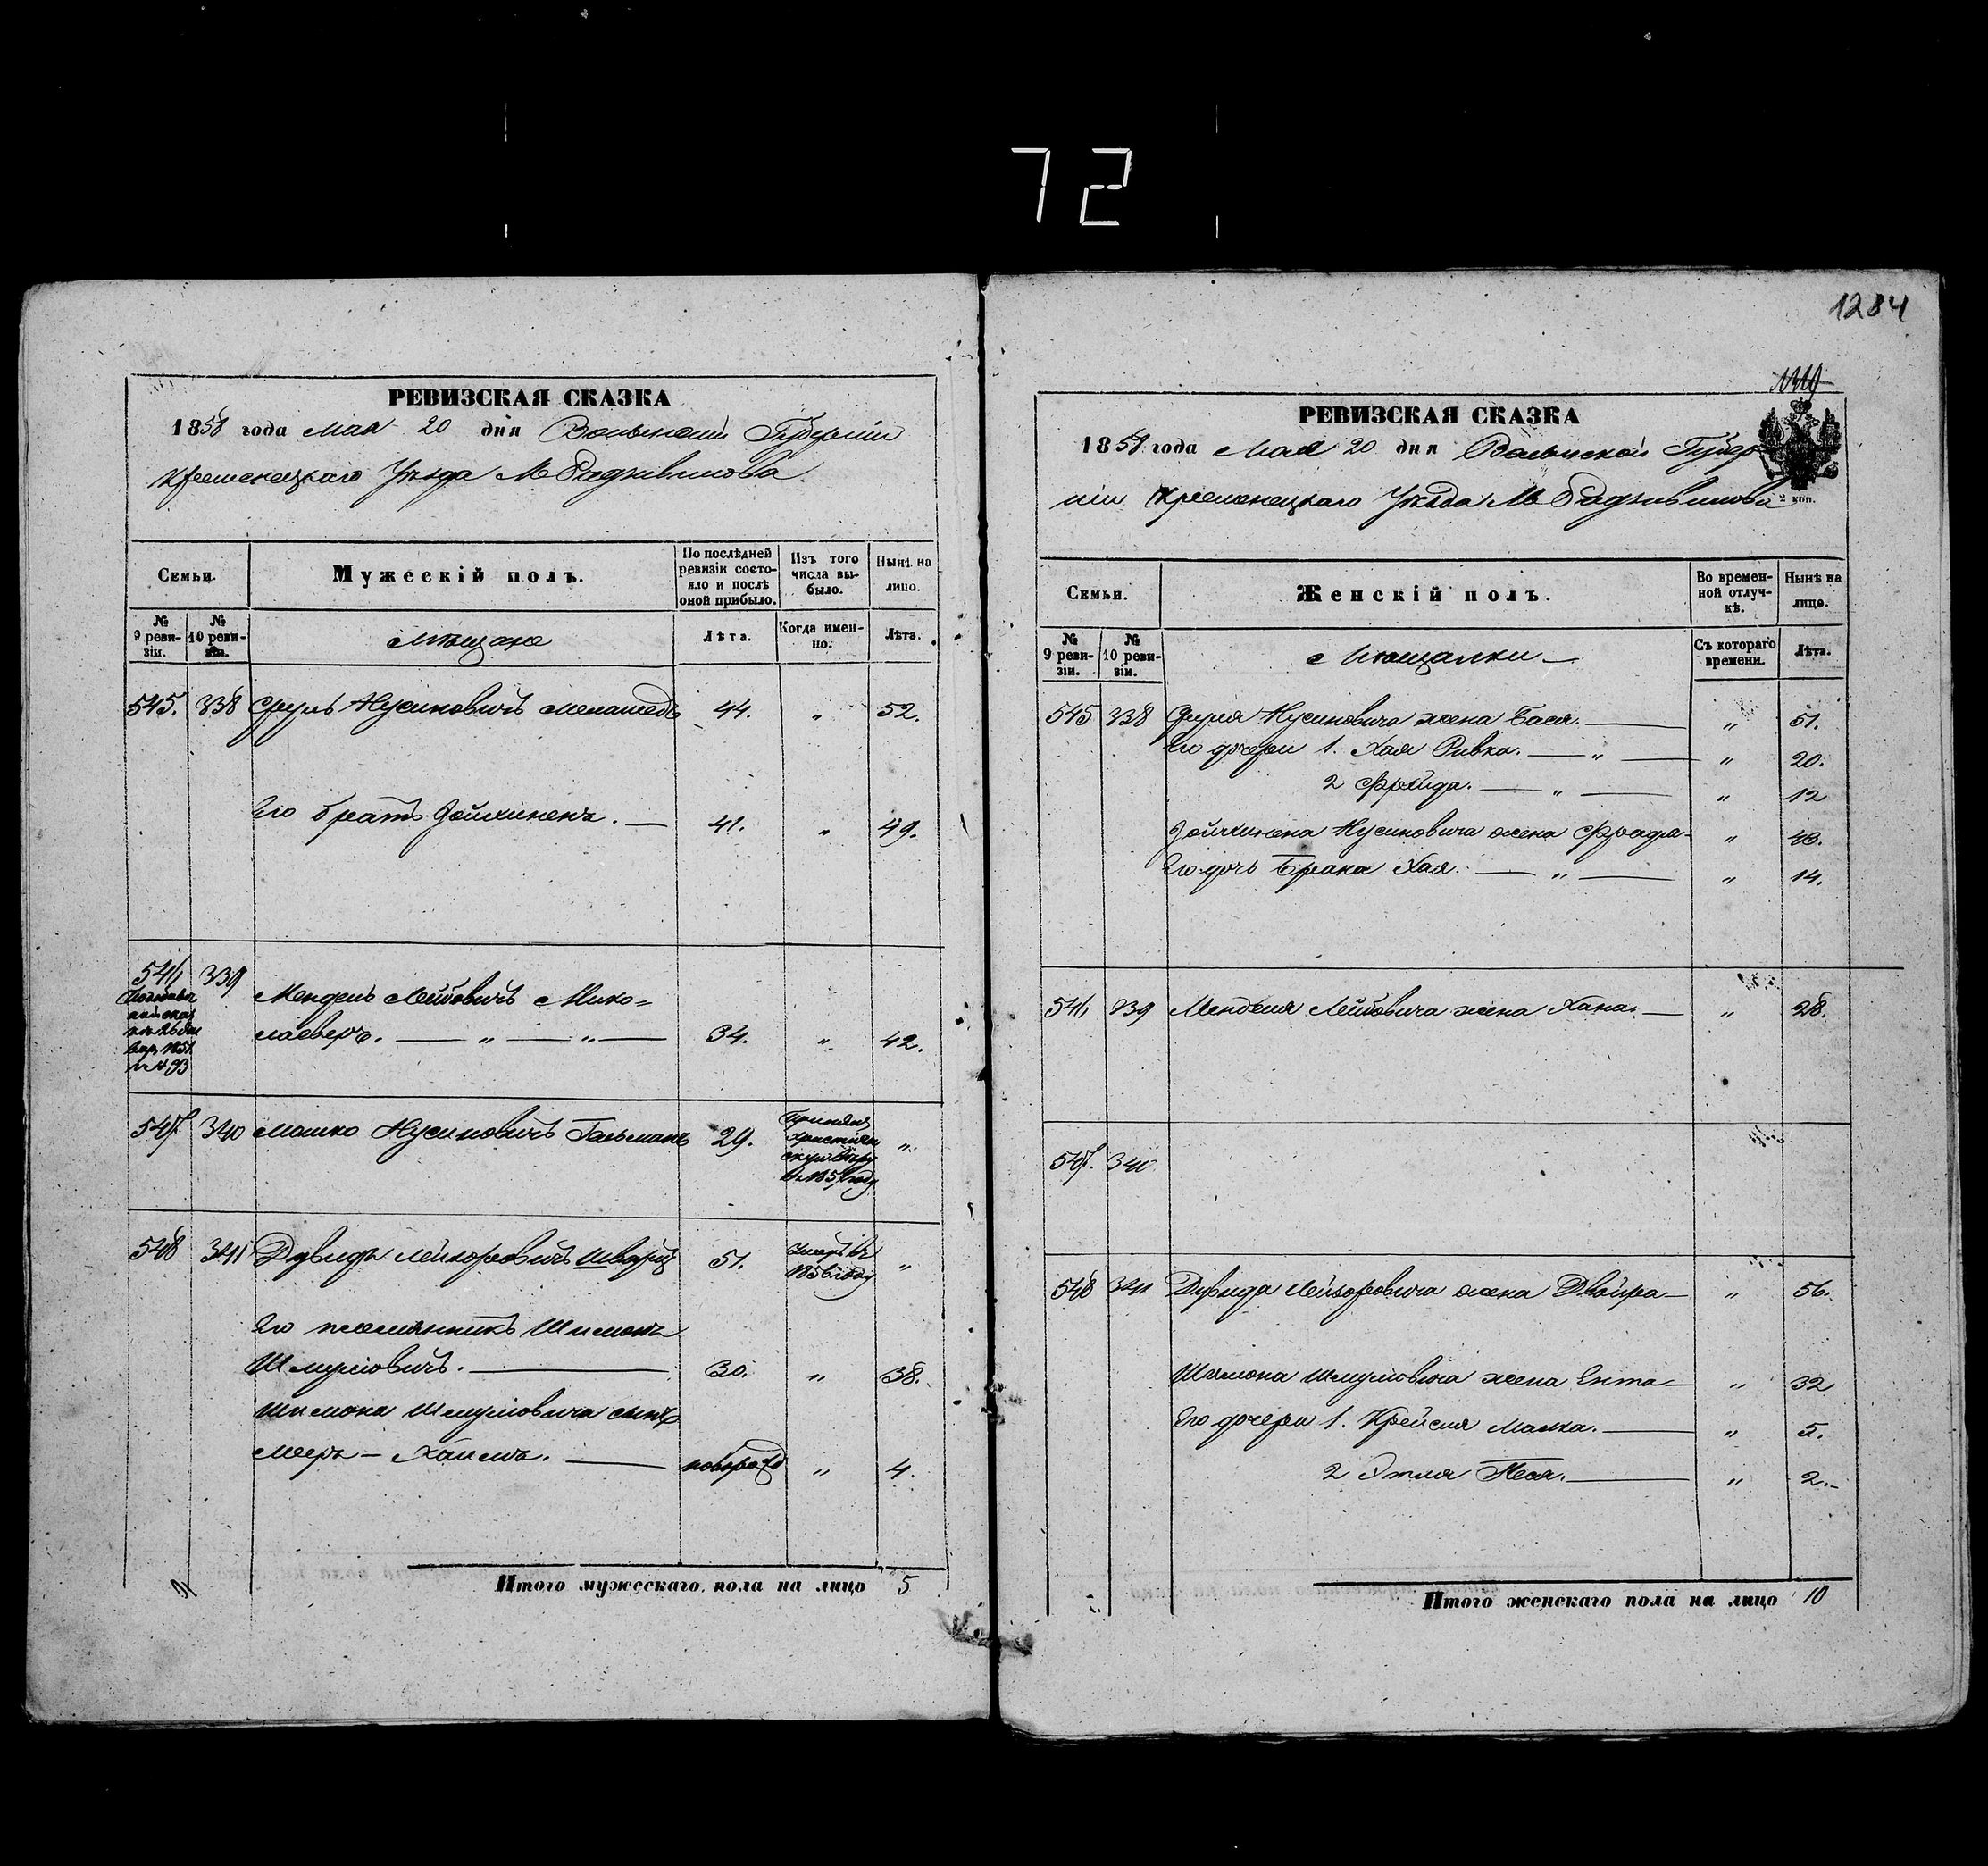 72
1284
РЕВИЗСКАЯ СКАЗКА
1858 года Мая 20 дня Волынской Губерніи
Кременецкаго Уѣзда М Радзивилова
Семьи.
Мужескій полъ.
По послѣдней ревизіи состояло и послѣ оной прибыло.
Изъ того числа выбыло.
Нынѣ на лицо.
№ 9 ревизіи.
№ 10 ревизіи.
Мѣщане
Лѣта.
Когда именно.
Лѣта.
545. 338 Сруль Нусиновичъ Меламедъ 44. „ 52.
Его братъ Зойхиненъ. — 41. „ 49.
546 339 Мендель Лейбовичъ Мико=
лаеверъ. — „ — „ — 34. „ 42.
547. 340 Мошко Нусиновичъ Гольманъ 29. Принялъ христіанскую вѣру въ 1857 году „
548 341 Дувидъ Лейзоровичъ Шварцъ 51. Умеръ въ 1856 году „
Его племянникъ Шимонъ
Шмулiовичъ. — 30. „ 38.
Шимона Шмуліовича сынъ
Мееръ – Хаимъ. — новорожд „ 4.
Итого мужескаго пола на лицо 5
РЕВИЗСКАЯ СКАЗКА
1858 года Мая 20 дня Волынской Губер
ніи Кременецкаго Уѣзда М Радзивилова
2 коп.
Семьи.
Женскій полъ.
Во временной отлучкѣ.
Нынѣ на лицо.
№ 9 ревизіи.
№ 10 ревизіи.
Мѣщанки —
Съ котораго времени.
Лѣта.
545 338 Сруля Нусиновича жена Бася. — „ 51.
Его дочери 1. Хая Ривка. — „ — „ 20.
2 Фрейда. — „ — „ 12
Зойхинена Нусиновича жена — „ 48.
Его дочь Брана Хая. — „ — „ 14.
546 339 Менделя Лейбовича жена Хана. — „ 28.
547. 340
548 341 Дувида Лейзоровича жена Двойра — „ 56.
Шимона Шмуліовича жена Ента — „ 32
Его дочери 1. Крейсля Малка. — „ 5.
2 Этля Песя. — „ 2.
Итого женскаго пола на лицо 10